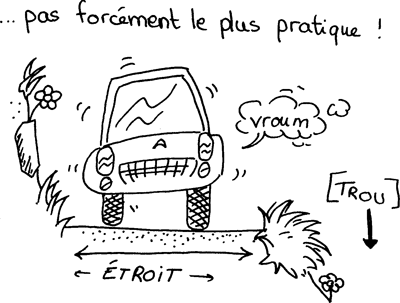 ... pas forcément le plus pratique !
vroum
[TROU]
← ÉTROIT →